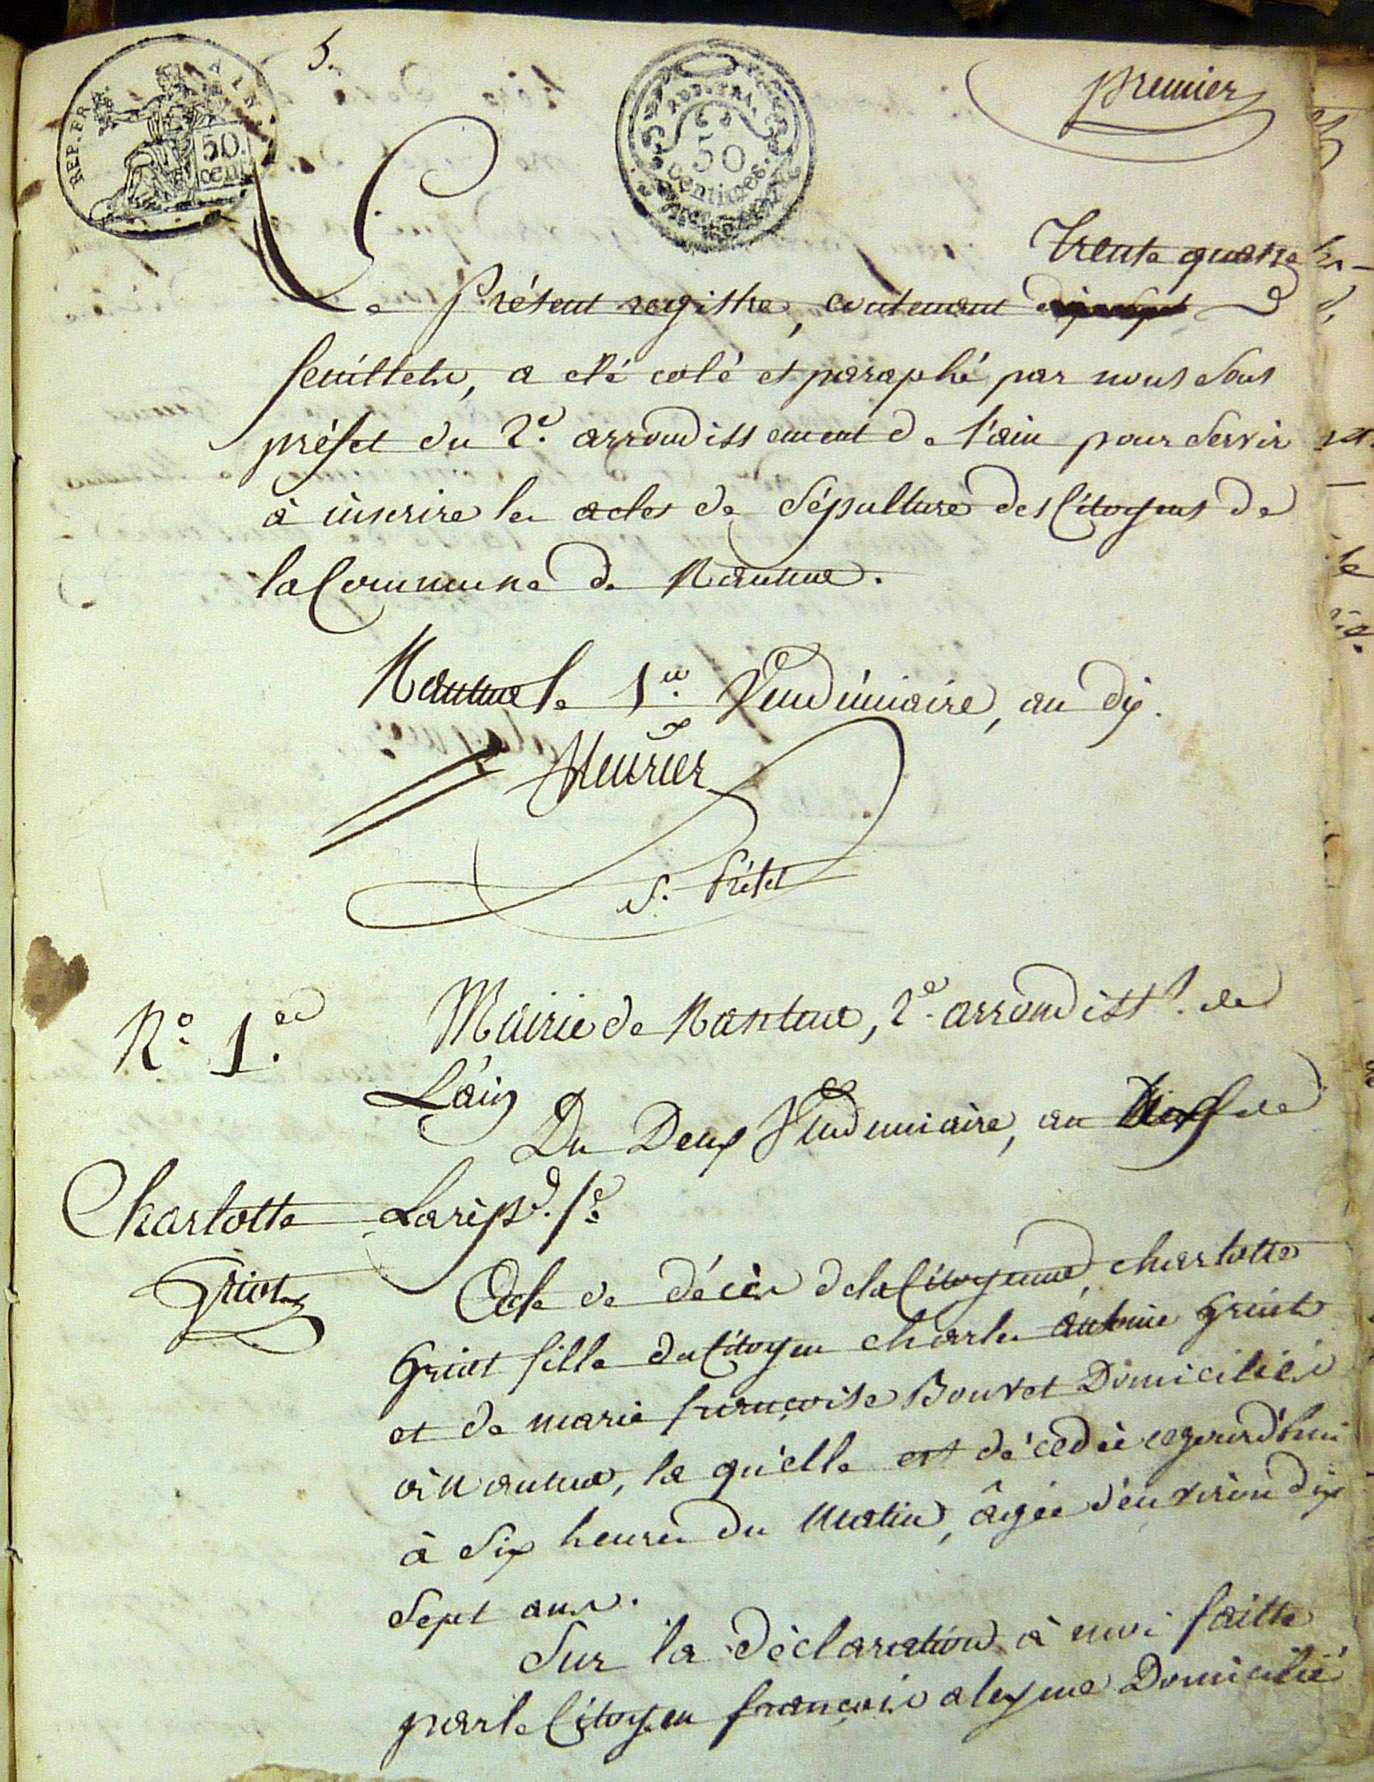 5.
REP. FR.
AIN.
50.
CENT.
REP. FRA.
50
centimes.
premier
Trente quatre
Ce Présent registre, contenant
feuillets, a eté coté et paraphé par nous Sous
préfet du 2e. arrondissement de l'ain pour Servir
à inscrire les actes de Sépulture des Citoyens de
la Commune de Nantua.
Nantua le 1er. Vendémiaire, an dix.
S. Préfet
No 1er.
Mairie de Nantua, 2e. arrondisst. de
L'ain
Du Deux Vendemiaire, an Dix de
Charlotte
Griot
La rèp. fe.
Acte de décès de la Citoyenne charlotte
Griot fille du Citoyen charles antoine Griot
et de marie françoise Bouvet Domiciliés
à Nantua, la quelle est décedée cejourd'hui
à Six heures du Matin, âgée d'environ dix
Sept ans.
Sur la déclaration à moi faitte
par le Citoyen françois aleyme Domicilié